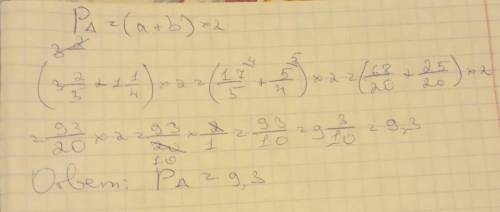 P△ = (a + b) × 2
(3 2/5 + 1 1/4) × 2 = (17/5 ⁴ + 5/4 ⁵) × 2 = (68/20 + 25/20) × 2
= 93/20 × 2 = 93/20 10 × 2/1 = 93/10 = 9 3/10 = 9,3
Ответ: P△ = 9,3